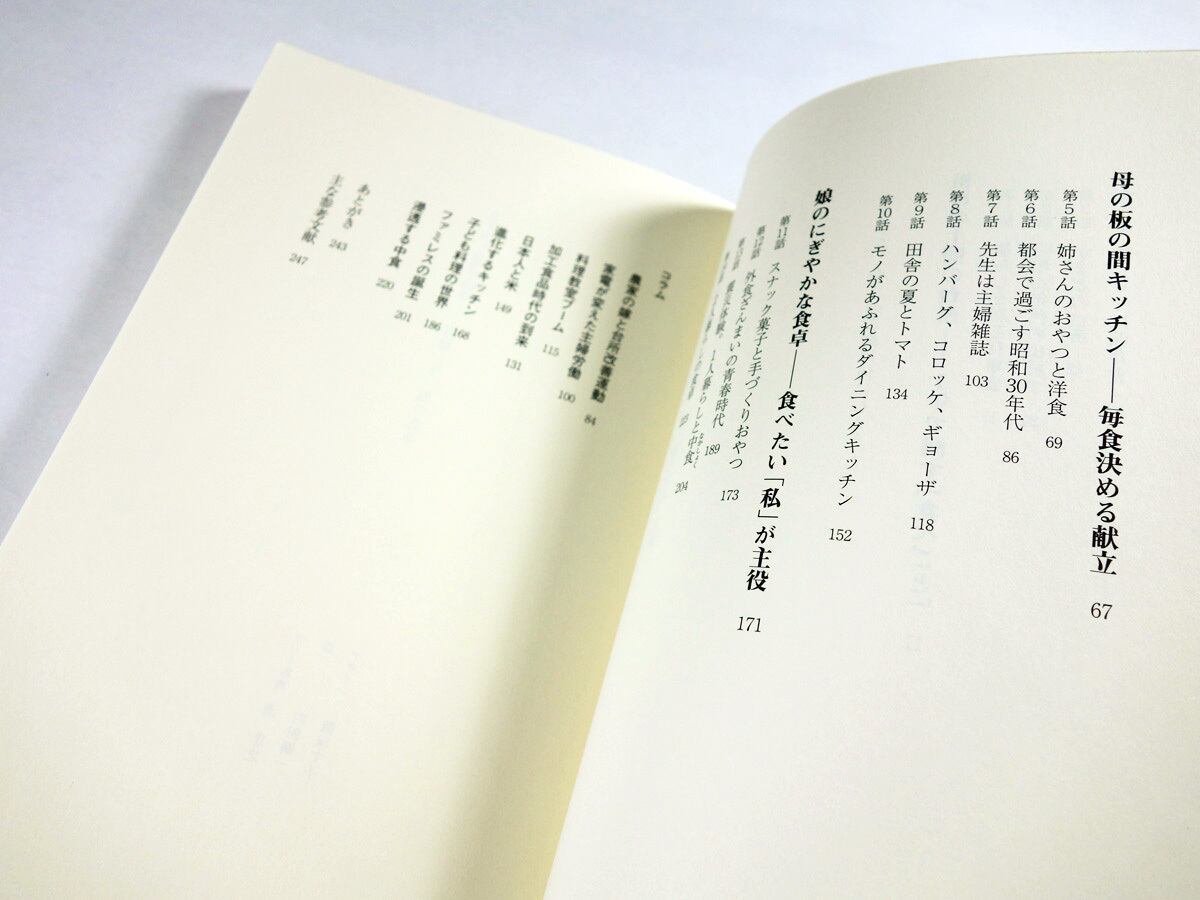 母の板の間キッチン――毎食決める献立 67
第5話 姉さんのおやつと洋食 69
第6話 都会で過ごす昭和30年代 86
第7話 先生は主婦雑誌 103
第8話 ハンバーグ、コロッケ、ギョーザ 118
第9話 田舎の夏とトマト 134
第10話 モノがあふれるダイニングキッチン 152
娘のにぎやかな食卓――食べたい「私」が主役 171
第11話 スナック菓子と手づくりおやつ 173
第12話 外食ざんまいの青春時代 189
1人暮らしと中食 204
コラム
農家の嫁と台所改善運動 84
家電が変えた主婦労働 100
料理教室ブーム 115
加工食品時代の到来 131
日本人と米 149
進化するキッチン 168
子ども料理の世界 186
ファミレスの誕生 201
浸透する中食 220
あとがき 243
主な参考文献 247